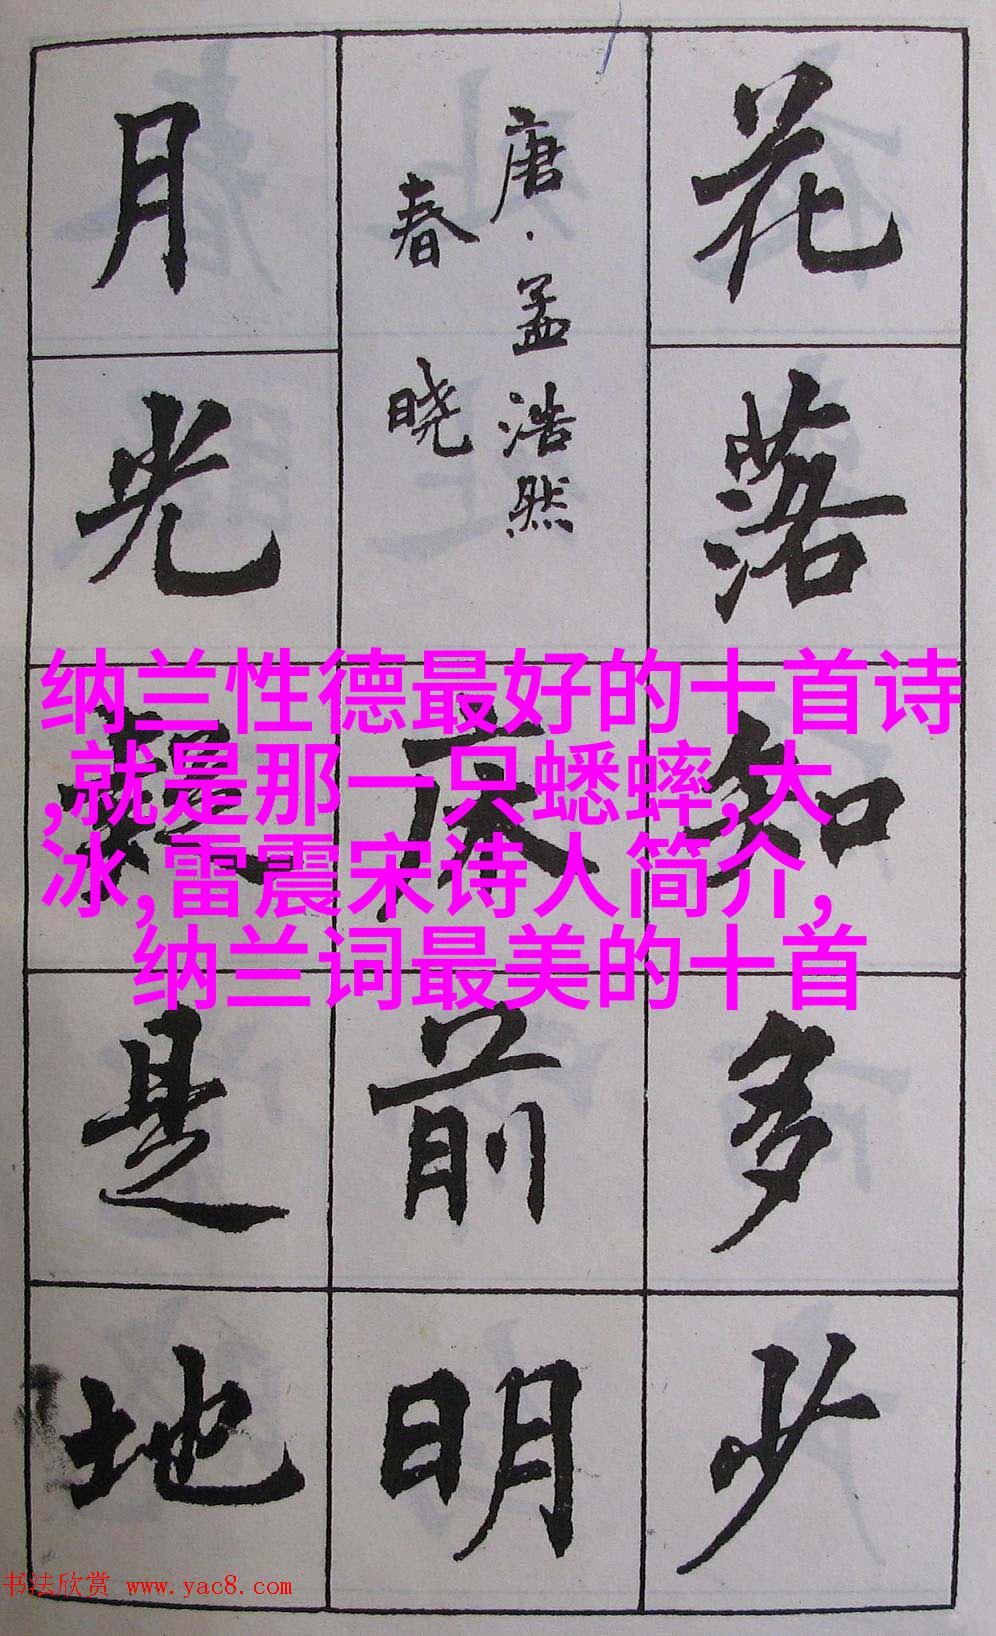 花落知多少
唐·孟浩然
春晓
床前明
月光疑是地
纳兰性德最好的十首诗
,就是那一只蟋蟀,大
冰,雷震宋诗人简介,
纳兰词最美的十首
书法欣赏 www.yac8.com